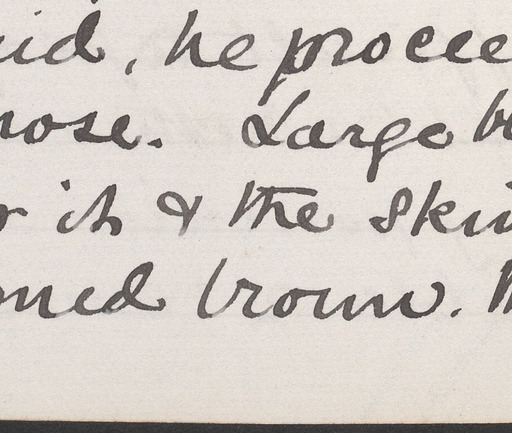 id, he procee
nose. Large b
r it & the ski
ned brown.